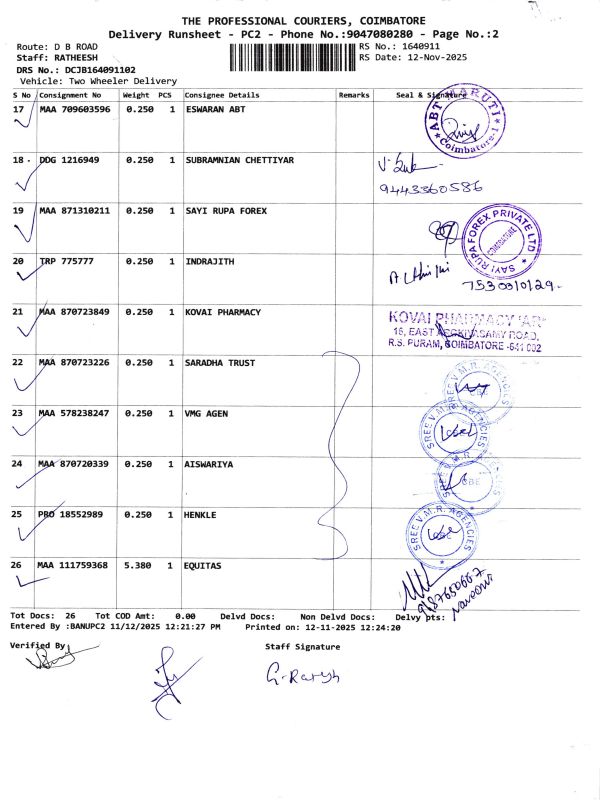 THE PROFESSIONAL COURIERS, COIMBATORE
Delivery Runsheet - PC2 - Phone No.:9047080280 - Page No.:2
Route: D B ROAD
RS No.: 1640911
Staff: RATHEESH
RS Date: 12-Nov-2025
DRS No.: DCJB164091102
Vehicle: Two Wheeler Delivery
S No Consignment No Weight PCS Consignee Details Remarks Seal & Signature
17 MAA 709603596 0.250 1 ESWARAN ABT
ABT MARUTI
Coimbatore-1
18 DDG 1216949 0.250 1 SUBRAMNIAN CHETTIYAR
9443360586
19 MAA 871310211 0.250 1 SAYI RUPA FOREX
SAYI RUPA FOREX PRIVATE LTD
COIMBATORE
20 TRP 775777 0.250 1 INDRAJITH
7530010129
21 MAA 870723849 0.250 1 KOVAI PHARMACY
KOVAI PHARMACY "AR"
16, EAST AROKIYASAMY ROAD,
R.S. PURAM, COIMBATORE -641 002
22 MAA 870723226 0.250 1 SARADHA TRUST
SREE V.M.R. AGENCIES
CBE
23 MAA 578238247 0.250 1 VMG AGEN
SREE V.M.R. AGENCIES
24 MAA 870720339 0.250 1 AISWARIYA
SREE V.M.R. AGENCIES
CBE
25 PRO 18552989 0.250 1 HENKLE
SREE V.M.R. AGENCIES
26 MAA 111759368 5.380 1 EQUITAS
Tot Docs: 26 Tot COD Amt: 0.00 Delvd Docs: Non Delvd Docs: Delvy pts:
Entered By :BANUPC2 11/12/2025 12:21:27 PM Printed on: 12-11-2025 12:24:20
Verified By
Staff Signature